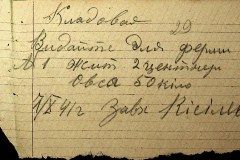 Кладовая
29
Видайте для ферми
№ 1 жита 2 центнери
Овса 50 кіло
7/X 41г Завх Кісіль